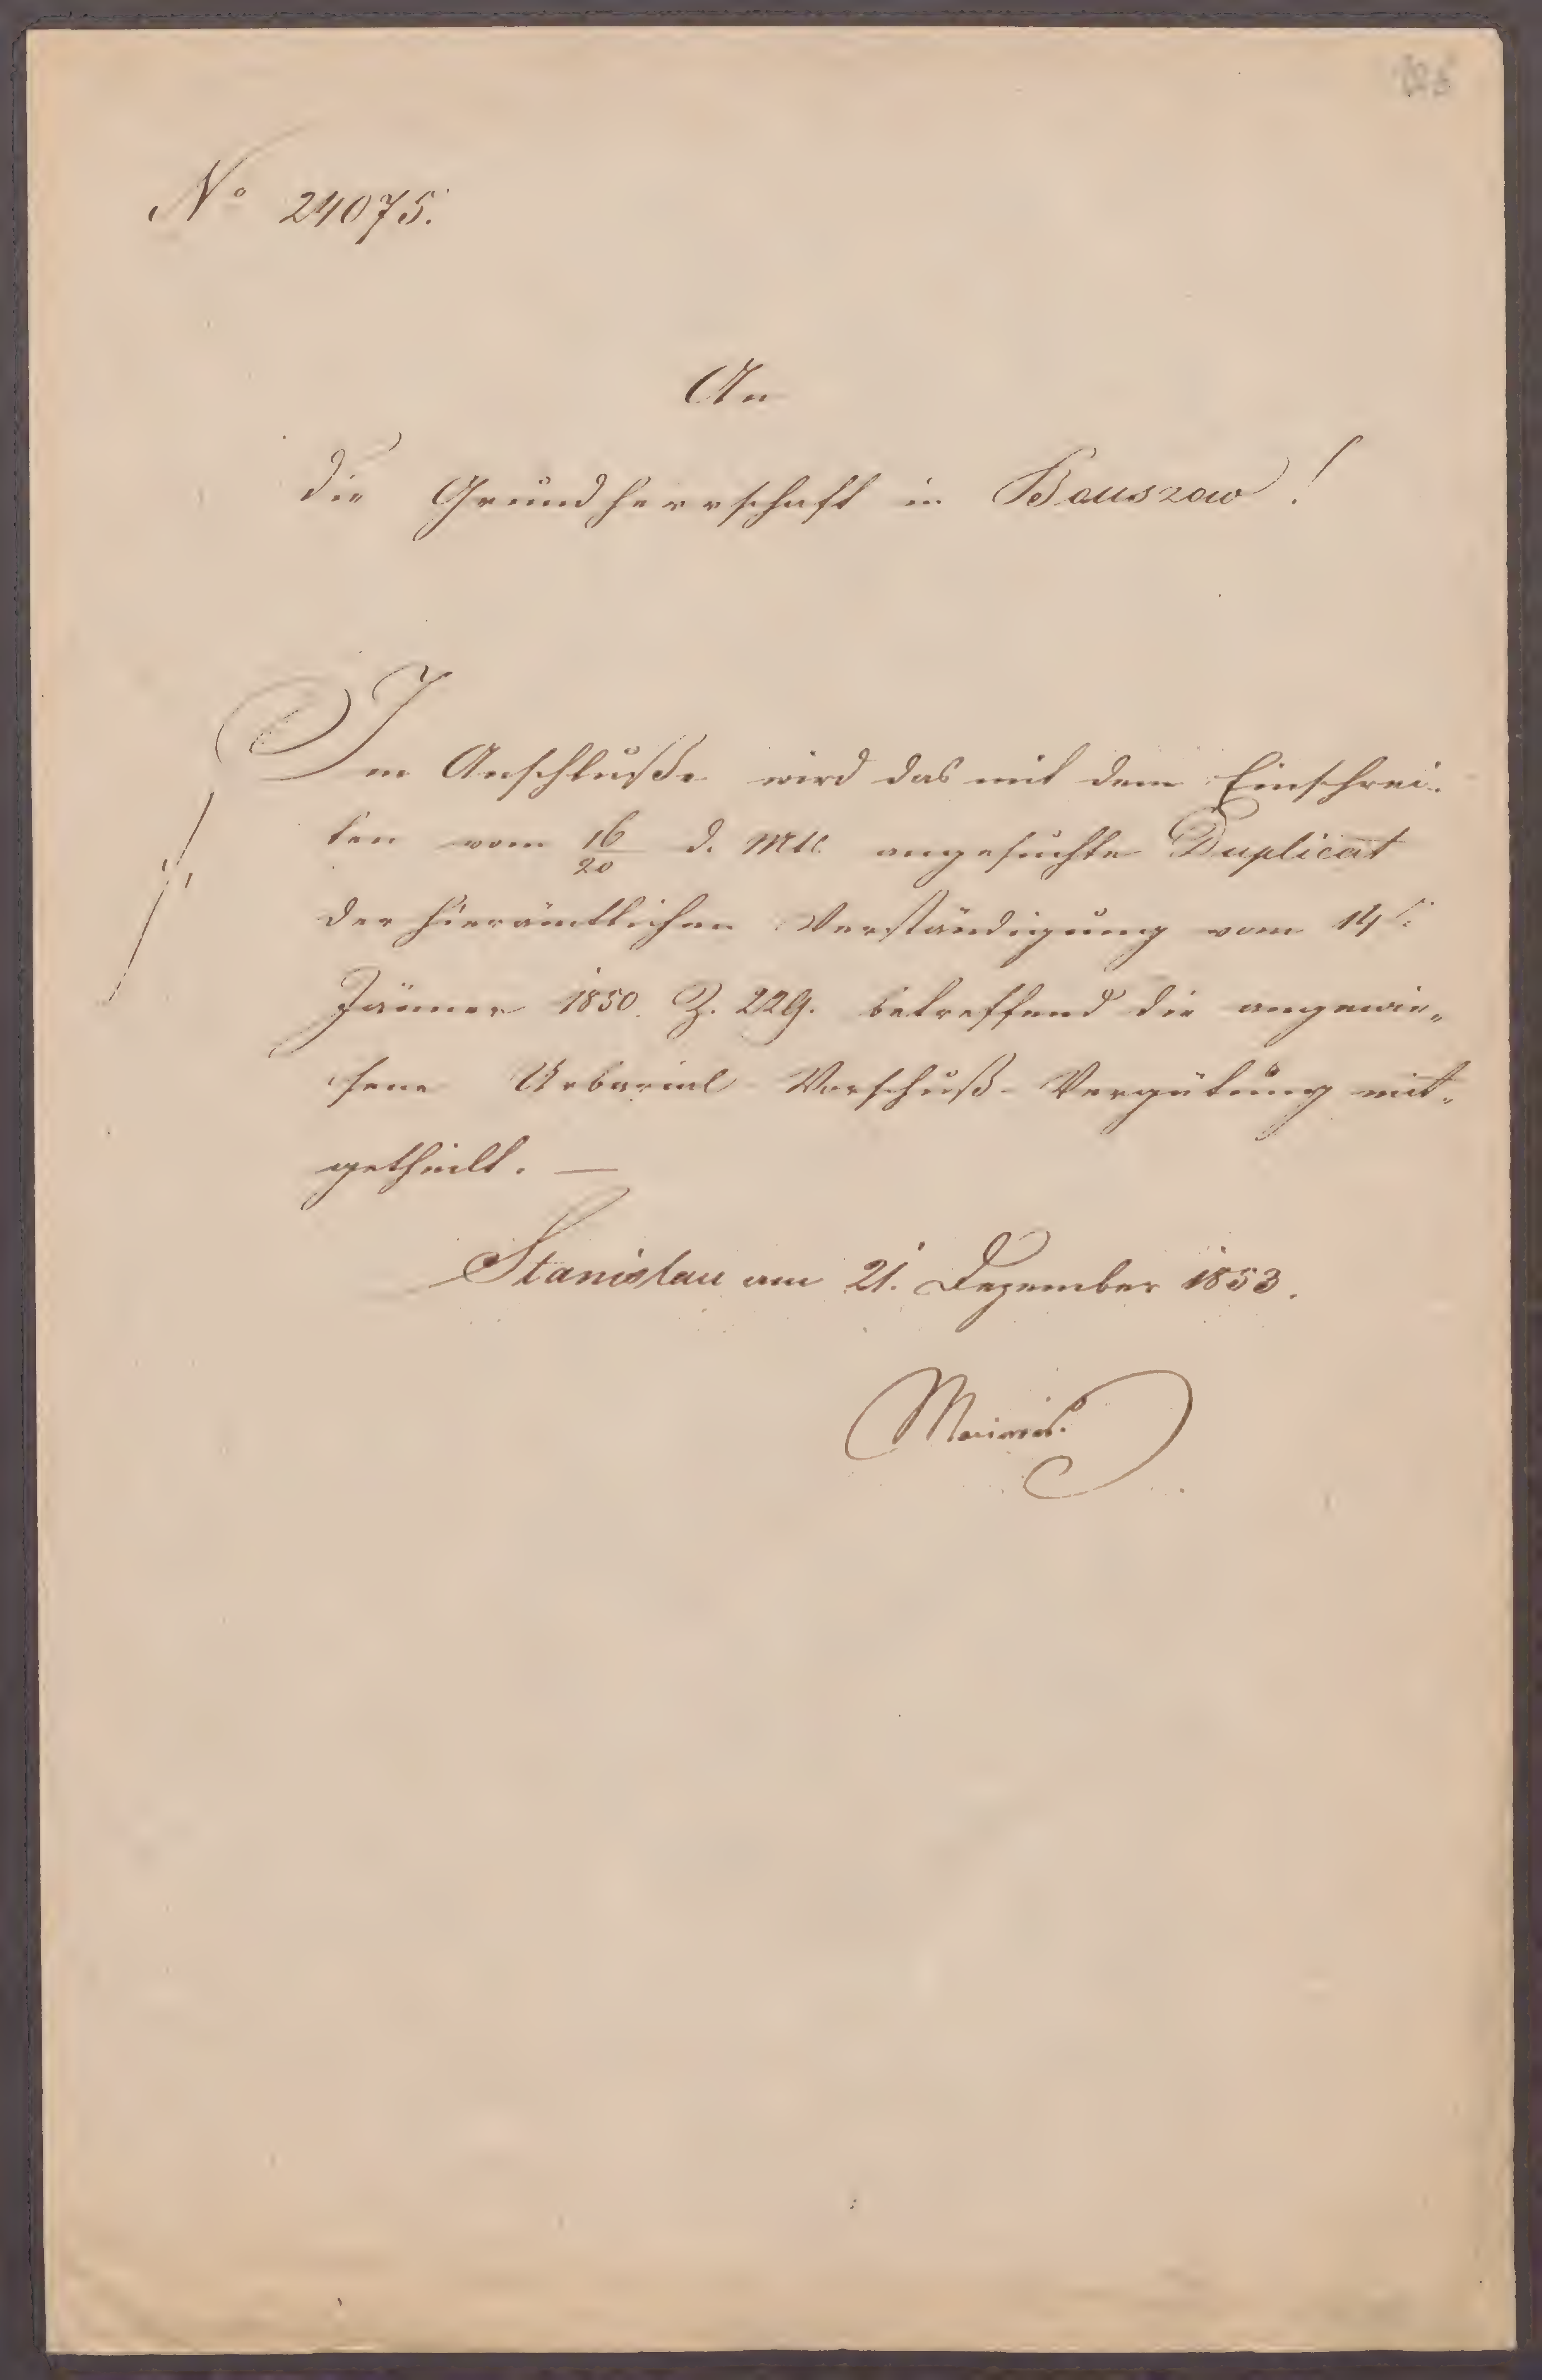 No 24075.
An
die Grundherrschaft in Bouszow!
Im Anschluße wird das mit dem Einschrei-
ten vom 16/20 d. Mts. angesuchte Duplicat
der hierämtlichen Verständigung vom 14t:
Jänner 1850. Z. 229. betreffend die angewie„
sene Urbarial-Vorschuß-Vergütung mit„
getheilt. —
Stanislau am 21. Dezember 1853.